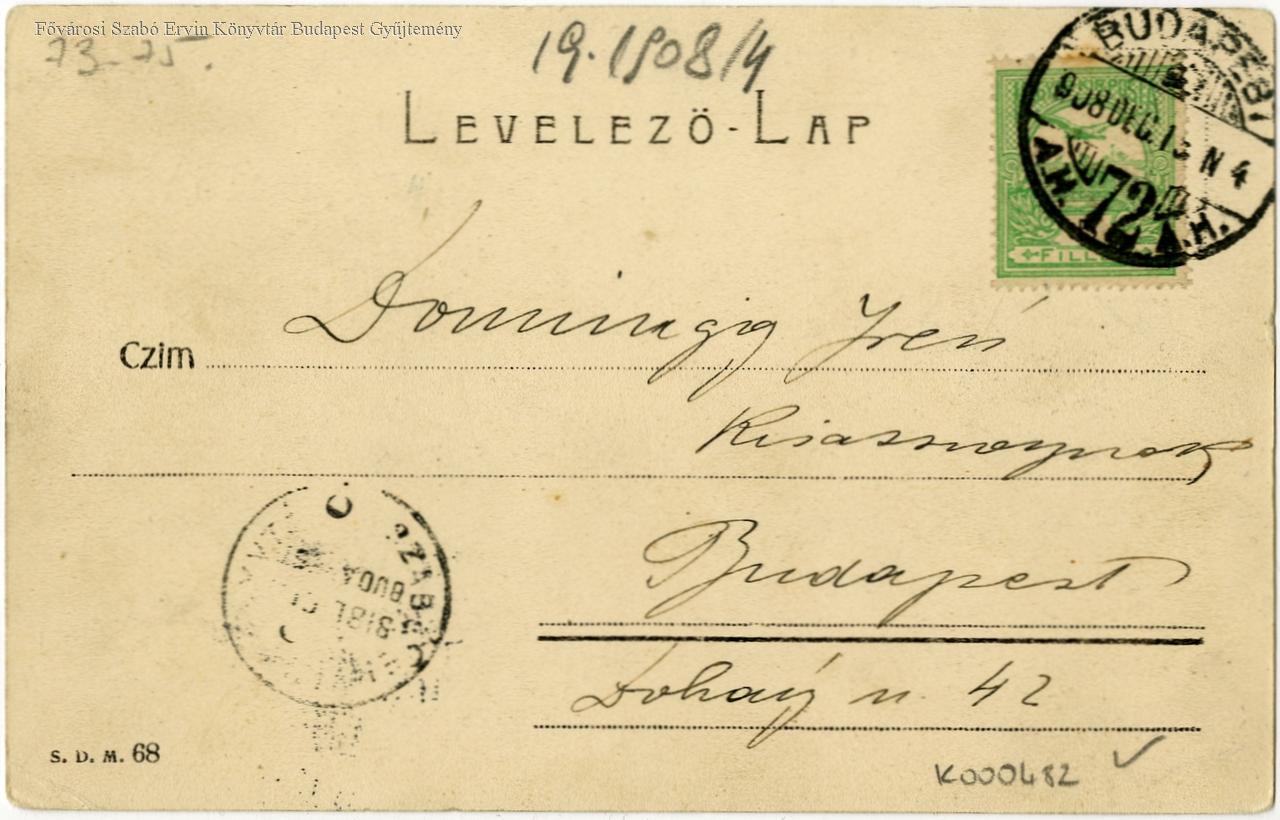 Fővárosi Szabó Ervin Könyvtár Budapest Gyűjtemény
73-75.
19.1908/4
LEVELEZŐ-LAP
BUDAPEST
908 DEC. 13 N 4
A.H. 72 A.H.
FILL
Czim
Irén
Kisasszonynak
Budapest
Dohány u. 42
SZABÓ
BUDA
S. D. M. 68
K000482